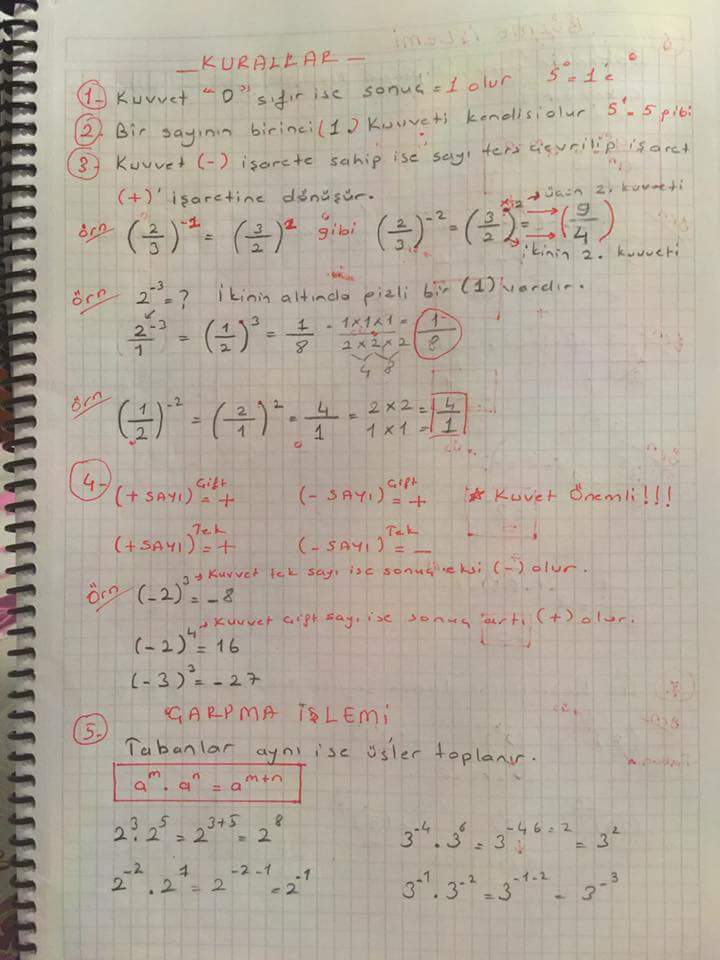 KURALLAR
1- Kuvvet "0" sıfır ise sonuç = 1 olur 5⁰ = 1
2. Bir sayının birinci (1.) Kuvveti kendisi olur 5¹ = 5 gibi
3- Kuvvet (-) işarete sahip ise sayı ters çevrilip işaret
(+)' işaretine dönüşür.
→ üçün 2. kuvveti
örn (2/3)⁻¹ = (3/2)¹ gibi (2/3)⁻² = (3/2)² = (9/4)
ikinin 2. kuvveti
örn 2⁻³ = ? İkinin altında gizli bir (1) vardır.
2⁻³/1 = (1/2)³ = 1/8 = 1x1x1/2x2x2 = 1/8
4 8
örn (1/2)⁻² = (2/1)² = 4/1 = 2x2/1x1 = 4/1
4- (+ SAYI)^Çift = + (- SAYI)^Çift = + ☆ Kuvet Önemli!!!
(+SAYI)^Tek = + (- SAYI)^Tek = -
Örn (-2)³ = -8 → Kuvvet tek sayı ise sonuç eksi (-) olur.
(-2)⁴ = 16 → Kuvvet çift sayı ise sonuç artı (+) olur.
(-3)³ = -27
5. ÇARPMA İŞLEMİ
Tabanlar aynı ise üsler toplanır.
aᵐ . aⁿ = aᵐ⁺ⁿ
2³ . 2⁵ = 2³⁺⁵ = 2⁸ 3⁻⁴ . 3⁶ = 3^-4 6 = 2 = 3²
2⁻² . 2¹ = 2⁻²⁻¹ = 2⁻¹ 3⁻¹ . 3⁻² = 3⁻¹⁻² = 3⁻³